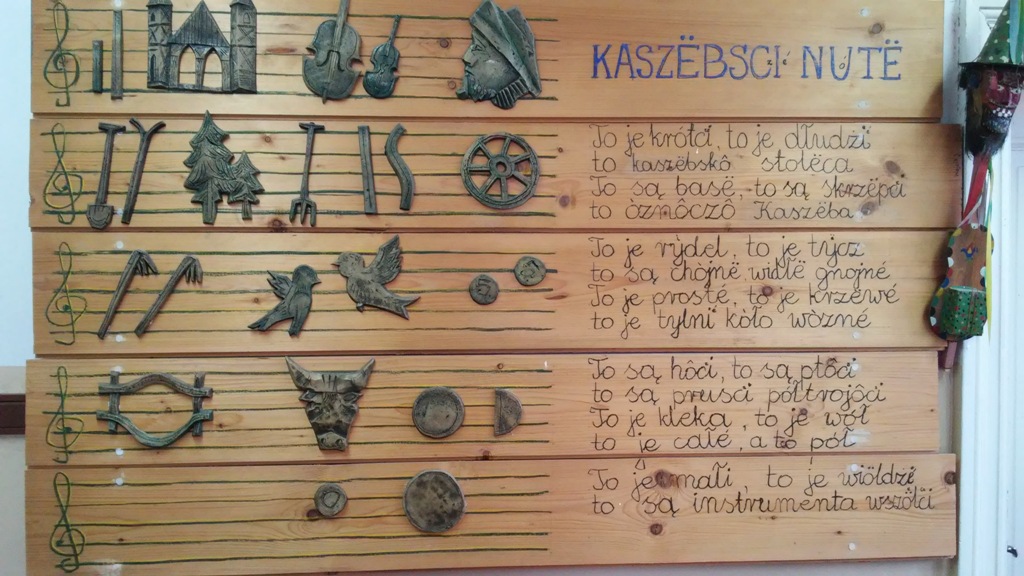 KASZËBSCI NUTË
To je krótci, to je dłudżi
to kaszëbskô stolëca
To są basë, to są skrzëpci
to òznôczô Kaszëba
To je rydel, to je tycz
to są chójnë widłë gnojné
To je prosté, to je krzëwé
to je tylni kòło wòzné
To są hôci, to są ptôci
to są prusci półtrojôci
To je klëka, to je wół
to je całé, a to pół
To je małi, to je wiôldżi
to są instrumenta wszëtci